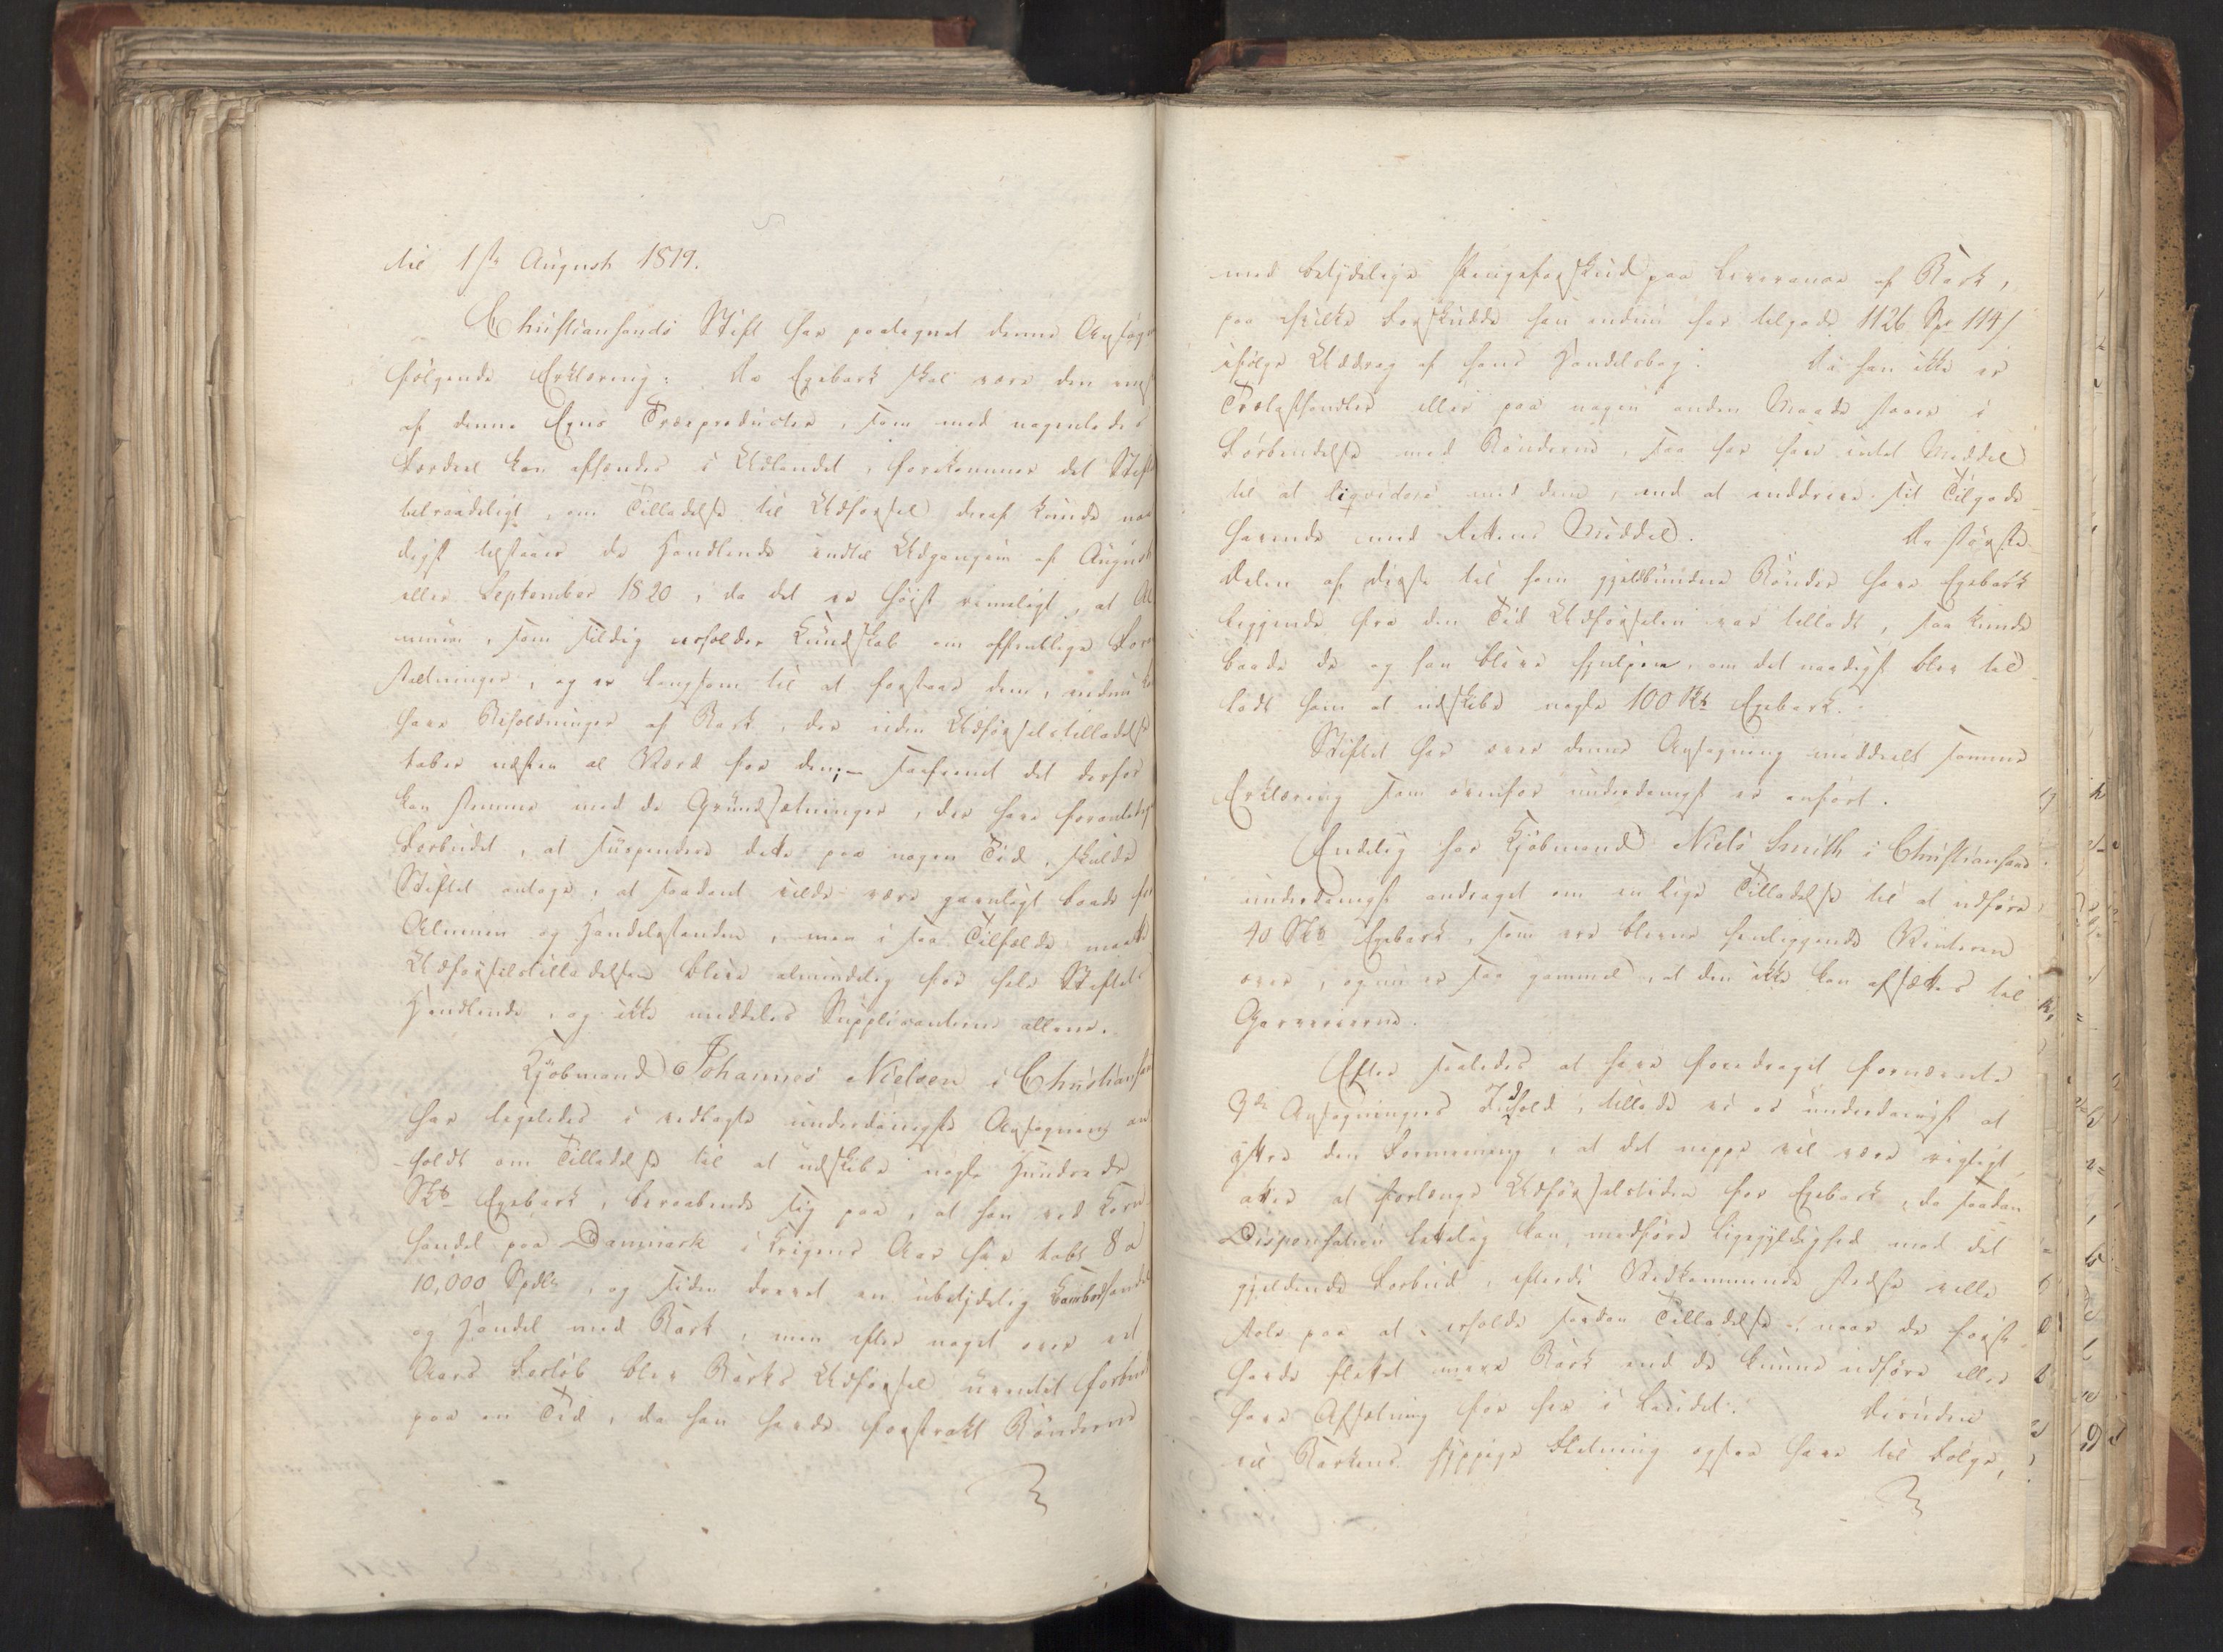 til 1ste August 1819.
Christiansands Stift har paategnet denne Ansøg
følgende Erklæring: Da Egebark skal være den
af denne Egns Træeproducter, som med nogenledes
Fordeel kan afsendes i Udlandet, forekommer det Stift
tilraadeligt, om Tilladelse til Udførsel deraf kunde naa
digst tilstaaes de Handlende indtil Udgangen af August
eller September 1820, da det er høist rimeligt, at Al
muen, som sildig erholder Kundskab om offentlige For
sætninger, og er langsom til at forstaae dem, endnu
have Beholdninger af Bark, der uden Udførselstilladelse
taber næsten al Værd for dem; saafremt det derfor
kan stemme med de Grundsætninger, der have foranlediget
Forbudet, at suspendere dette paa nogen Tid, skulde
Stiftet antage, at saadant vilde være gavnligt baade for
Almuen og Handelsstanden, men i saa Tilfælde maatte
Udførselstilladelsen blive almindelig for hele Stiftets
Handlende, og ikke meddeles Supplicanterne allene.
Kjøbmand Johannes Nielsen i Christiansand
har ligeledes i vedlagte underdanigste Ansøgning an
holdt om Tilladelse til at udskibe nogle Hundrede
Skt Egebark, beraabende sig paa, at han ved Korn
handel paa Danmark i Krigens Aar har tabt 8 a
10,000 Spdlr, og siden drevet en ubetydelig
og Handel med Bark, men efter noget over et
Aars Forløb blev Barks Udførsel uventet forbudt
paa en Tid, da han havde forstrakt Bønderne
med betydelige Pengeforskud paa Leverance af Bark,
paa hvilke Forskudde han endnu har tilgode 1126 Spd 114 s
ifølge Uddrag af hans Handelsbog. Da han ikke er
Trælasthandler eller paa nogen anden Maade staaer i
Forbindelse med Bønderne, saa har han intet Middel
til at liqvidere med dem, end at inddrive sit Tilgode
havende med Rettens Middel. Da største
delen af disse til ham gjeldbundne Bønder have Egebark
liggende fra den Tid Udførselen var tilladt, saa kunde
baade de og han blive hjulpen, om det naadigst blev til
ladt ham at udskibe nogle 100 Skt Egebark.
Stiftet har over denne Ansøgning meddeelt samme
Erklæring som ovenfor underdanigst er anført.
Endelig har Kjøbmand Niels Smith i Christiansand
underdanigst andraget om en lige Tilladelse til at udføre
40 Skt Egebark, som ere blevne henliggende Vinteren
over, og nu er saa gammel, at den ikke kan afsættes til
Garverierne.
Efter saaledes at have foredraget fornævnte
3de Ansøgningers Indhold, tillade vi os underdanigst at
yttre den Formening, at det neppe vil være rigtigt
atter at forlænge Udførselstiden for Egebark, da saadan
Dispensation letteligt kan medføre Ligegyldighed mod det
gjeldende Forbud, efterdi Vedkommende stedse ville
stole paa at erholde saadan Tilladelse, naar de først
havde flekket mere Bark end de kunne udføre eller
have Afsætning for her i Landet. Desuden
vil Barkens hyppige Flekning ogsaa have til Følge,